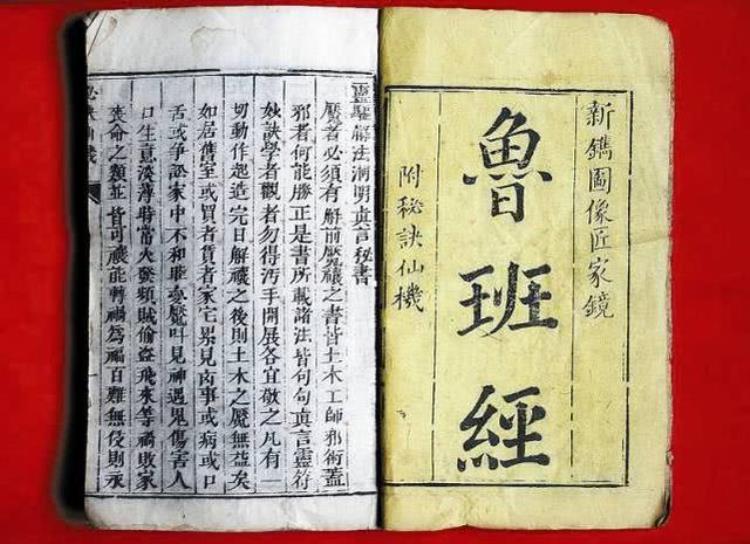 新鐫圖像匠家鏡
魯班經
附秘訣仙機
靈驅解法洞明真言秘書
魘者必須有解前魘禳之書皆土木工師邪術蓋
邪者何能勝正是書所載諸法皆句句真言靈符
妙訣學者觀者勿得汚手開展各宜敬之凡有一
切動作起造完日解禳之後則土木之魘無益矣
如居舊室或買者賃者家宅累見凶事或病或口
舌或爭訟家中不和睡魘叫見神遇鬼傷害人
口生意淡薄時當火發頻賊偷盜飛來等禍敗家
喪命之類並皆可禳能轉禍為福百難無侵則永